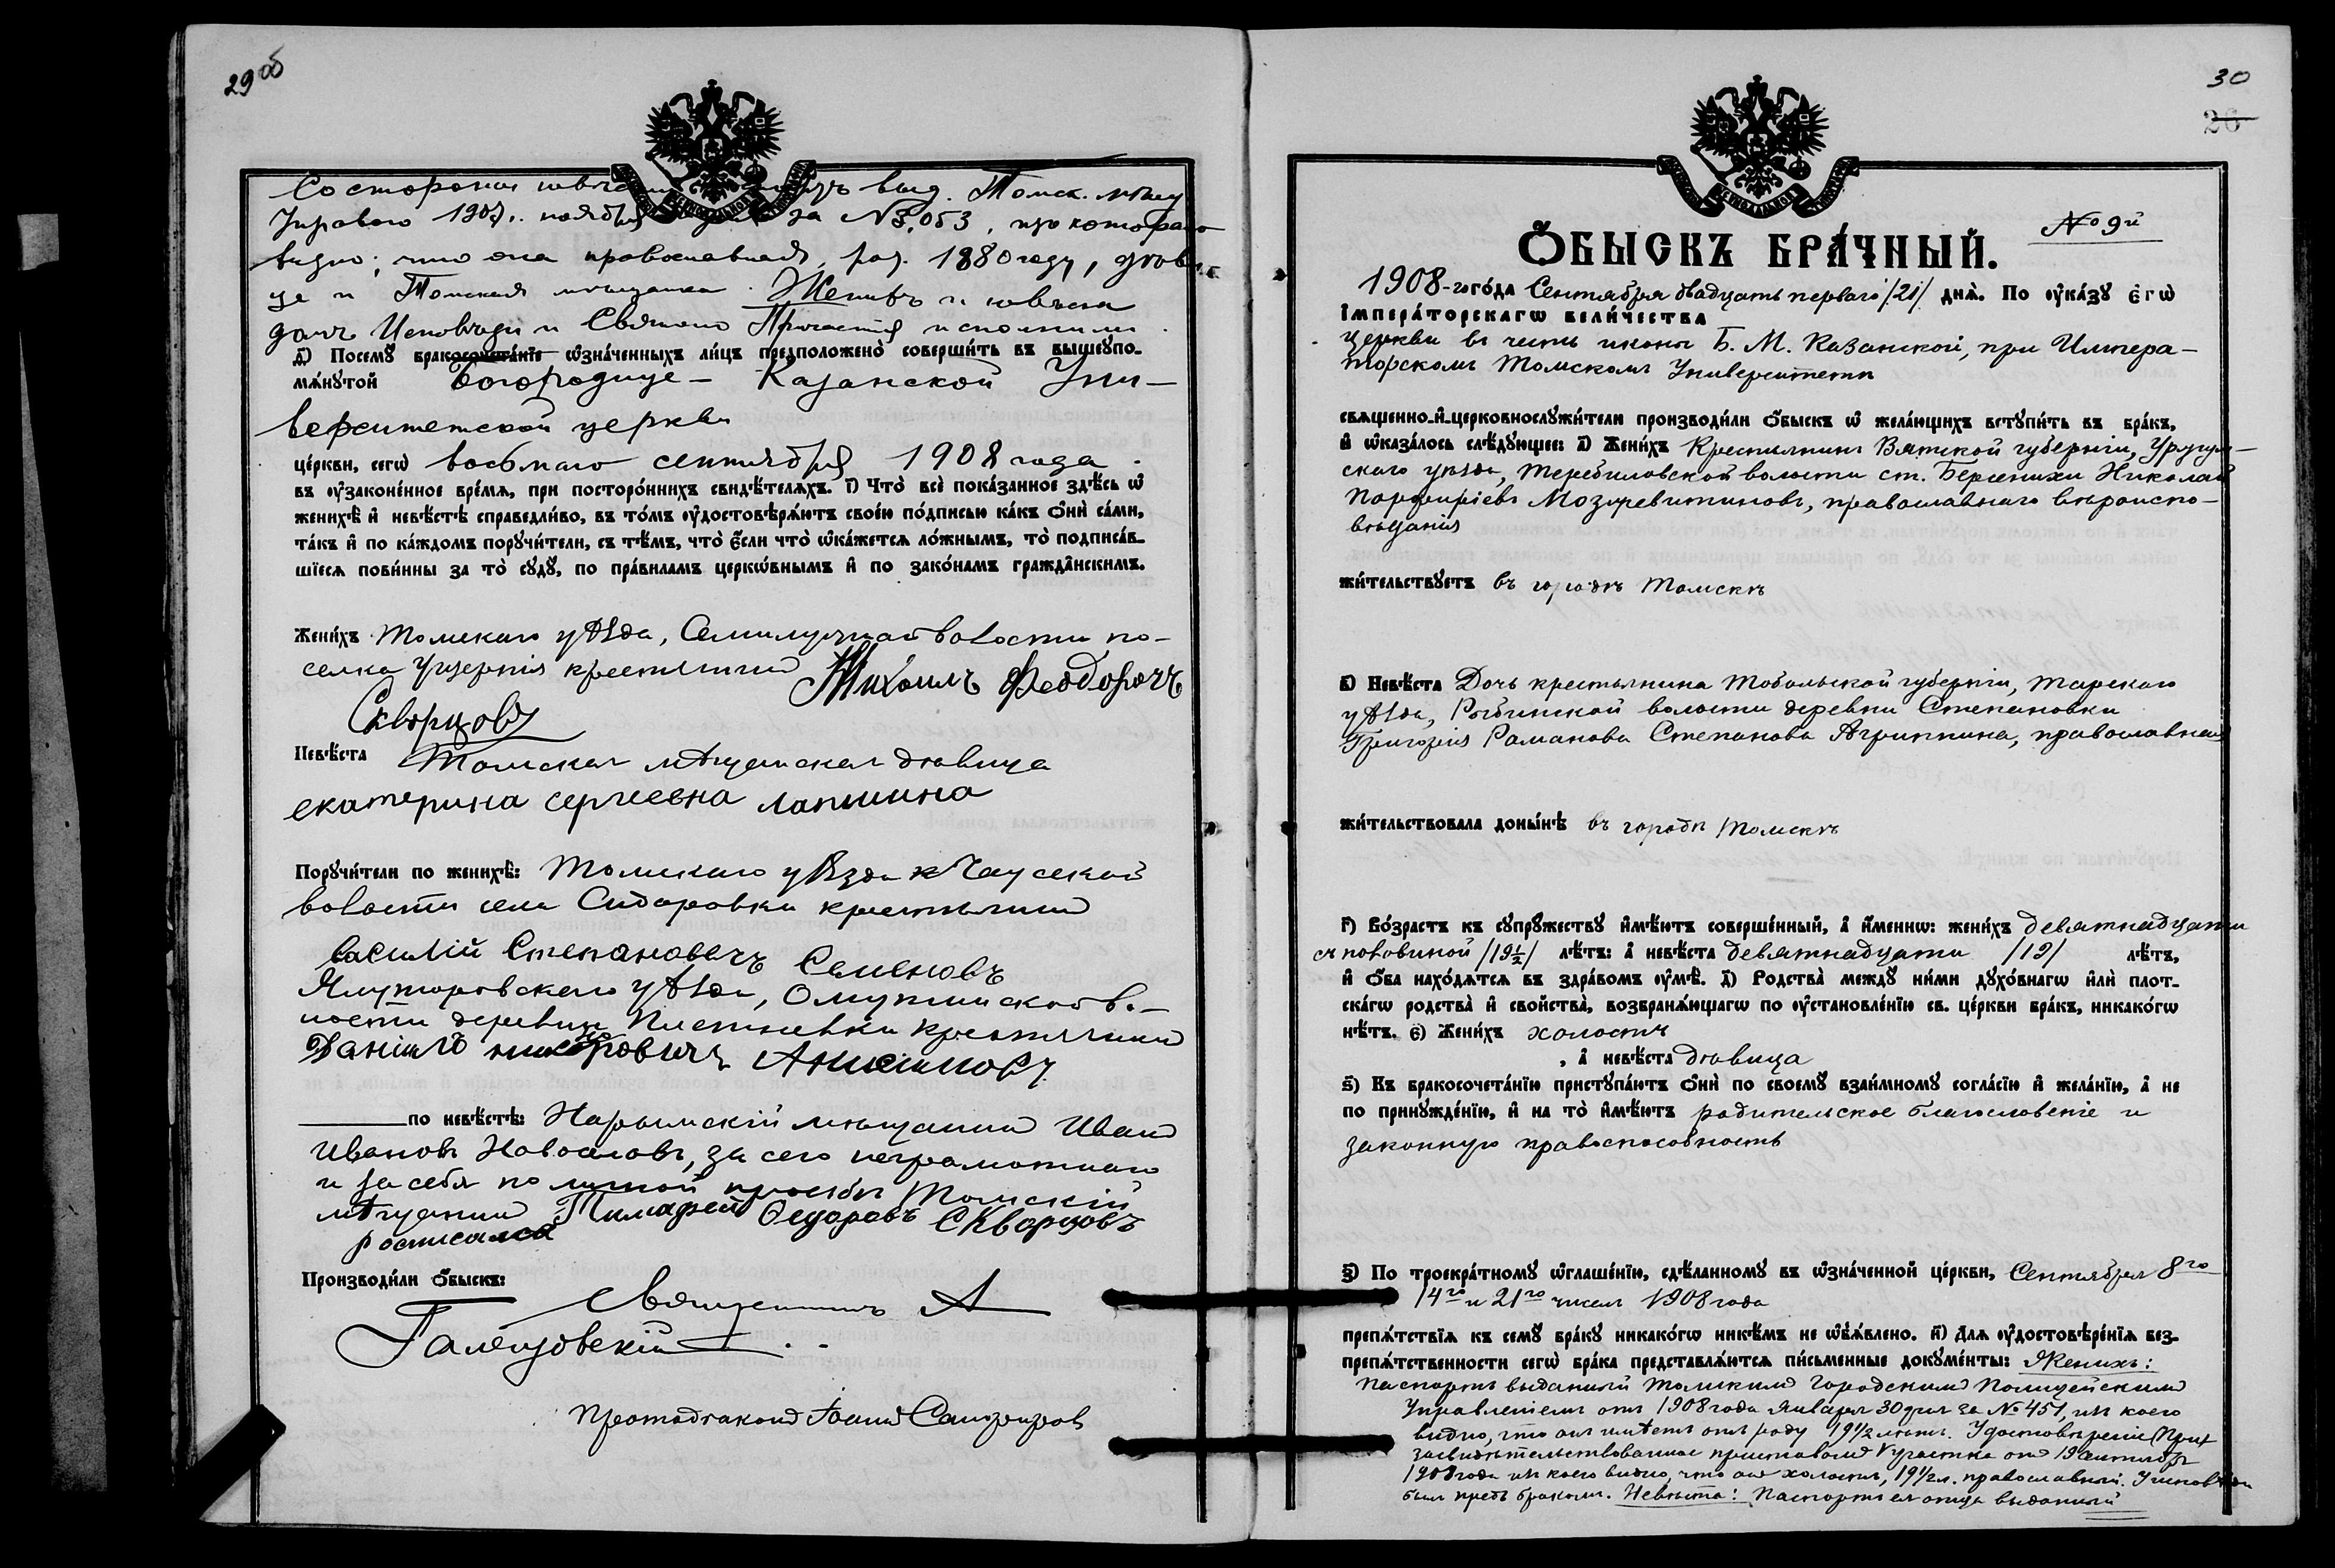 29 об
Со стороны невѣсты выд. Томск. мѣщ
Управою 190 . ноября за № 3,053, изъ котораго
видно; что она православная, род. 1880 году, дѣви
ца и Томская мѣщанка. Женихъ и невѣста
долгъ Исповѣди и Святаго Причастія исполнили.
д҃і) Посемꙋ бракосочета́нїе ѡ҆зна́ченныхъ ли́цъ предположено̀ соверши́ть въ вышеꙋпо-
мѧ́нꙋтой Богородице- Казанской Уни-
верситетской церкви
це́ркви, сегѡ̀ восьмаго сентября 1908 года.
въ ᲂу҆зако́нённое вре́мѧ, при посторо́ннихъ свидѣ́телѧхъ. і҃) Что̀ всѐ пока́занное здѣ́сь ѡ҆
женихѣ̀ и҆ невѣ́стѣ справедли́во, въ то́мъ ᲂу҆достовѣрѧ́ютъ свое́ю по́дписью ка́къ ѻ҆нѝ са́ми,
та́къ и҆ по ка́ждомъ порꙋчи́тели, съ тѣ́мъ, что̀ є҆́сли что̀ ѡ҆ка́жетсѧ ло́жнымъ, то̀ подписа́в-
шїесѧ пови́нны за то̀ сꙋдꙋ̀, по пра́виламъ церкѡ́внымъ и҆ по зако́намъ гражда̑нскимъ.
Жени́хъ Томскаго уѣзда, Семилужной волости по-
селка крестьянинъ Михаилъ Феодорочъ
Скворцовъ
Невѣ́ста Томская мѣщанская дѣвица
екатерина сергеевна лапшина
Порꙋчи́тели по женихѣ̀: Томскаго уѣзда Чаусской
волости села Сидоровки крестьянинъ
василій Степановечъ Семеновъ
Ялуторовскаго уѣзда, Омутинской во-
лости деревни Плетневки крестьянинъ
Даніилъ Анисимовъ
по невѣ́стѣ: Нарымскій мѣщанинъ Иванъ
Ивановъ Новоселовъ, за сего неграмотнаго
и за себя по личной просьбѣ Томскій
мѣщанинъ Тимофей Федоровъ Скворцовъ
росписался
Производи́ли ѻ҆́быскъ:
Священникъ А
Галяцовскій
Протодіаконъ Іоаннъ

30
26
№ 9й
Ѻ҆́БЫСКЪ БРА́ЧНЫЙ.
1908-го го́да Сентября двадцать перваго /21/ днѧ̀. По ᲂу҆ка́зꙋ Є҆гѡ̀
І҆мпера́торскагѡ Вели́чества
церкви въ честь иконы Б. М. Казанской, при Импера-
торскомъ Томскомъ Университетѣ
свѧщенно- и҆ церковнослꙋжи́тели производи́ли ѻ҆́быскъ ѡ҆ жела́ющихъ встꙋпи́ть въ бра́къ,
и҆ ѡ҆каза́лось слѣ́дꙋющее: а҃) Жени́хъ Крестьянинъ Вятской губерніи, Уржум-
скаго уѣзда, Теребиловской волости ст. Берсенихи Николай
Порфиріевъ Мозжевитиновъ, православнаго вѣроиспо-
вѣданія
жи́тельствꙋетъ въ городѣ Томскѣ
в҃) Невѣ́ста Дочь крестьянина Тобольской губерніи, Тарскаго
уѣзда, Рыбинской волости деревни Степановки
Григорія Романова Степанова Агриппина, православная
жи́тельствовала доны́нѣ въ городѣ Томскѣ
г҃) Во́зрастъ къ сꙋпрꙋ́жествꙋ и҆мѣ́ютъ соверше́нный, а҆ и҆́меннѡ: жени́хъ девятнадцати
съ половиной /19½/ лѣ́тъ: а҆ невѣ́ста девятнадцати /19/ лѣ́тъ,
и҆ ѻ҆́ба нахо́дѧтсѧ въ здра́вомъ ᲂу҆мѣ̀. д҃) Родства̀ междꙋ̀ ни́ми дꙋхо́внагѡ и҆лѝ плот-
ска́гѡ родства̀ и҆ сво́йства̀, возбранѧ́ющагѡ по ᲂу҆становле́нїю св. це́ркви бра́къ, никако́гѡ
нѣ́тъ. є҃) Жени́хъ холостъ
, а҆ невѣ́ста дѣвица
ѕ҃) Къ бракосочета́нїю пристꙋпа́ютъ ѻ҆нѝ по своемꙋ̀ взаи́мномꙋ согла́сїю и҆ жела́нїю, а҆ не
по принꙋжде́нїю, и҆ на то̀ и҆мѣ́ютъ родительское благословеніе и
законную правоспособность
з҃) По троекра́тномꙋ ѡ҆глаше́нїю, сдѣ́ланномꙋ въ ѡ҆зна́ченной це́ркви, Сентября 8го
14го и 21го чиселъ 1908 года
препѧ́тствїѧ къ семꙋ̀ бра́кꙋ никако́гѡ никѣ́мъ не ѡ҆б̾ѧ́влено. и҃) Длѧ ᲂу҆достовѣре́нїѧ без-
препѧ́тственности сегѡ̀ бра́ка представлѧ́ютсѧ пи́сьменные докꙋме́нты: Женихъ:
Паспортъ выданный Томскимъ Городскимъ Полицейскимъ
Управленіемъ отъ 1908 года Января 30 дня за № 451, изъ коего
видно, что онъ имѣетъ отъ роду 19½ лѣтъ. Удостовѣреніе
засвидѣтельствованное приставомъ V участка отъ 19 сентября
1908 года изъ коего видно, что онъ холостъ, 19½ л. православный. У исповѣди
былъ предъ бракомъ. Невѣста: Паспортъ ея отца выданный